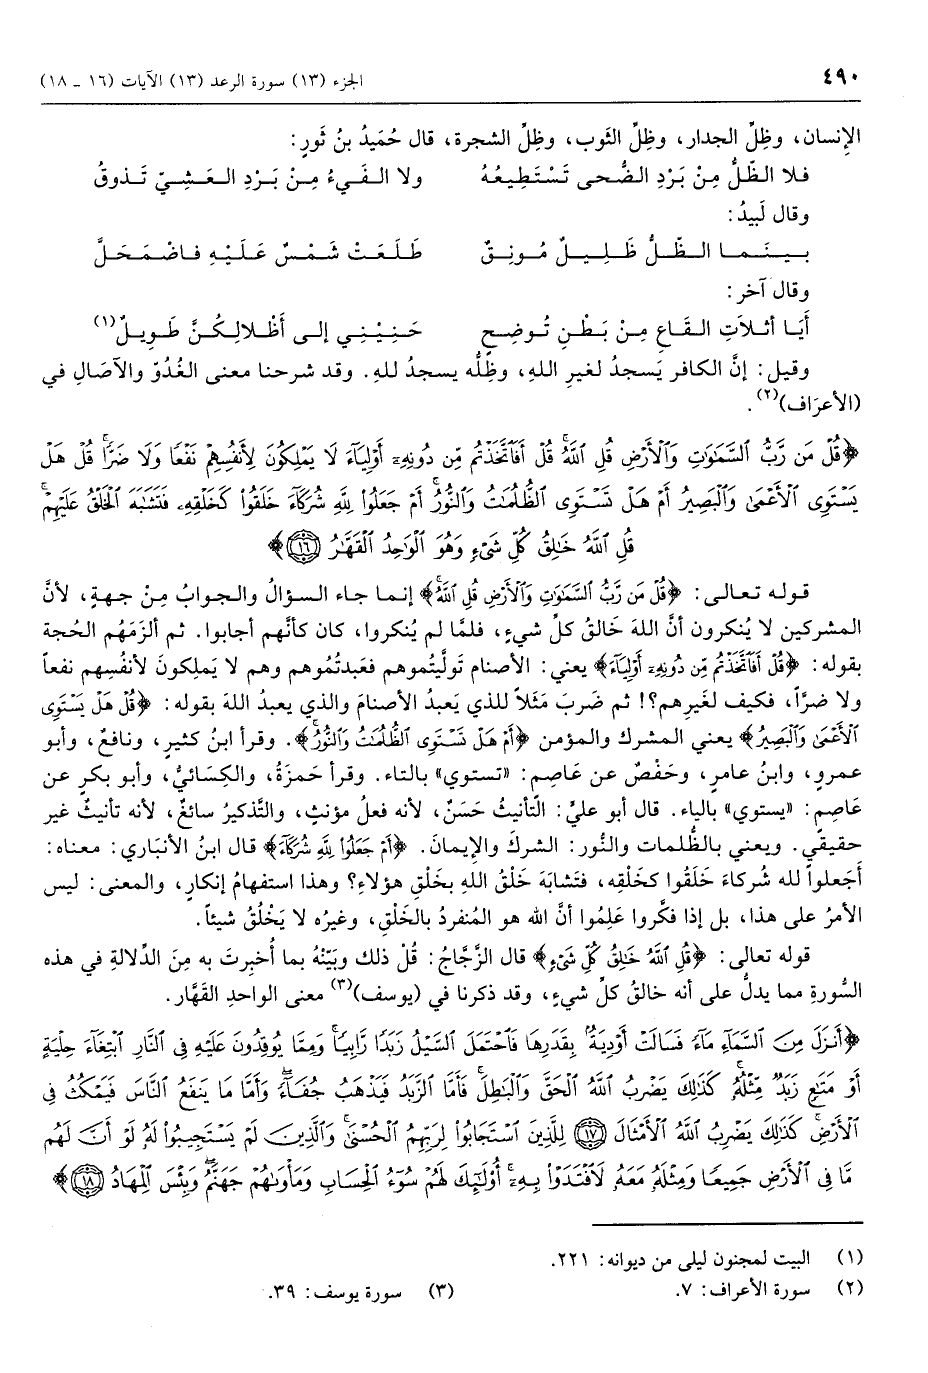 ٤٩٠
الجزء (١٣) سورة الرعد (١٣) الآيات (١٦ ـ ١٨)
الإنسان، وظِلِّ الجدار، وظِلِّ الثَّوب، وظِلِّ الشجرة، قال حُمَيدُ بنُ ثَورٍ:
فلا الظّلُّ مِنْ بَرْدِ الضُّحى تَسْتَطِيعُهُ ولا الفَيءُ مِنْ بَرْدِ العَشِيِّ تَذوقُ
وقال لَبيدُ:
بينَما الظّلُّ ظَلِيلٌ مُونِقٌ طَلَعَتْ شَمْسٌ عَلَيْهِ فاضْمَحَلَّ
وقال آخر:
أَيَا أثلاَتِ القَاعِ مِنْ بَطْنِ تُوضِحٍ حَنِيْنِي إلى أَظْلالِكُنَّ طَوِيلٌ(١)
وقيل: إنَّ الكافر يَسجدُ لغيرِ اللهِ، وظِلُّه يسجدُ للهِ. وقد شرحنا معنى الغُدُوِّ والآصَالِ في
(الأعرَاف)(٢).
﴿قُلْ مَن رَّبُّ السَّمَوَٰتِ وَٱلْأَرْضِ قُلِ ٱللَّهُ ۚ قُلْ أَفَٱتَّخَذْتُم مِّن دُونِهِۦٓ أَوْلِيَآءَ لَا يَمْلِكُونَ لِأَنفُسِهِمْ نَفْعًا وَلَا ضَرًّا ۚ قُلْ هَلْ
يَسْتَوِى ٱلْأَعْمَىٰ وَٱلْبَصِيرُ أَمْ هَلْ تَسْتَوِى ٱلظُّلُمَٰتُ وَٱلنُّورُ ۗ أَمْ جَعَلُوا۟ لِلَّهِ شُرَكَآءَ خَلَقُوا۟ كَخَلْقِهِۦ فَتَشَٰبَهَ ٱلْخَلْقُ عَلَيْهِمْ ۚ
قُلِ ٱللَّهُ خَٰلِقُ كُلِّ شَىْءٍ وَهُوَ ٱلْوَٰحِدُ ٱلْقَهَّٰرُ ١٦﴾
قوله تعالى: ﴿قُلْ مَن رَّبُّ السَّمَوَٰتِ وَٱلْأَرْضِ قُلِ ٱللَّهُ﴾ إنما جاء السؤالُ والجوابُ مِنْ جهةٍ، لأنَّ
المشركين لا يُنكرون أنَّ اللهَ خالقُ كلِّ شيءٍ، فلمَّا لم يُنكروا، كان كأنَّهم أجابوا. ثم ألزَمَهُم الحُجة
بقوله: ﴿قُلْ أَفَٱتَّخَذْتُم مِّن دُونِهِۦٓ أَوْلِيَآءَ﴾ يعني: الأصنام تَولَّيتُموهم فعَبدتُموهم وهم لا يَملِكونَ لأنفُسِهم نفعاً
ولا ضرًّا، فكيف لغَيرِهم؟! ثم ضَربَ مَثَلاً للذي يَعبدُ الأصنامَ والذي يعبدُ اللهَ بقوله: ﴿قُلْ هَلْ يَسْتَوِى
ٱلْأَعْمَىٰ وَٱلْبَصِيرُ﴾ يعني المشرك والمؤمن ﴿أَمْ هَلْ تَسْتَوِى ٱلظُّلُمَٰتُ وَٱلنُّورُ ۗ﴾. وقرأ ابنُ كثيرٍ، ونافعٌ، وأبو
عمرو، وابنُ عامرٍ، وحَفْصٌ عن عَاصِم: «تستوي» بالتاء. وقرأ حَمزَةُ، والكِسَائيُّ، وأبو بكرٍ عن
عَاصِمٍ: «يستوي» بالياء. قال أبو عليٍّ: التّأنيثُ حَسَنٌ، لأنه فعلُ مؤنثٍ، والتَّذكيرُ سائغٌ، لأنه تأنيثٌ غير
حقيقيٍّ. ويعني بالظُّلمات والنُّور: الشركَ والإيمانَ. ﴿أَمْ جَعَلُوا۟ لِلَّهِ شُرَكَآءَ﴾ قال ابنُ الأنباري: معناه:
أجَعلوا لله شُركاءَ خَلَقُوا كخَلْقِه، فتَشابَهَ خَلْقُ اللهِ بخَلْقِ هؤلاءِ؟ وهذا استفهامُ إنكارٍ، والمعنى: ليس
الأمرُ على هذا، بل إذا فكَّروا عَلِمُوا أنَّ الله هو المُنفردُ بالخَلْقِ، وغيرُه لا يَخْلُقُ شيئاً.
قوله تعالى: ﴿قُلِ ٱللَّهُ خَٰلِقُ كُلِّ شَىْءٍ﴾ قال الزَّجَّاجُ: قُلْ ذلك وبَيِّنْهُ بما أُخبِرتَ به مِنَ الدِّلالةِ في هذه
السُّورةِ مما يدلُّ على أنه خالقُ كلِّ شيءٍ، وقد ذكرنا في (يوسف)(٣) معنى الواحدِ القَهَّار.
﴿أَنزَلَ مِنَ ٱلسَّمَآءِ مَآءً فَسَالَتْ أَوْدِيَةٌۢ بِقَدَرِهَا فَٱحْتَمَلَ ٱلسَّيْلُ زَبَدًا رَّابِيًا ۚ وَمِمَّا يُوقِدُونَ عَلَيْهِ فِى ٱلنَّارِ ٱبْتِغَآءَ حِلْيَةٍ
أَوْ مَتَٰعٍ زَبَدٌ مِّثْلُهُۥ ۚ كَذَٰلِكَ يَضْرِبُ ٱللَّهُ ٱلْحَقَّ وَٱلْبَٰطِلَ ۚ فَأَمَّا ٱلزَّبَدُ فَيَذْهَبُ جُفَآءً ۖ وَأَمَّا مَا يَنفَعُ ٱلنَّاسَ فَيَمْكُثُ فِى
ٱلْأَرْضِ ۚ كَذَٰلِكَ يَضْرِبُ ٱللَّهُ ٱلْأَمْثَالَ ١٧ لِلَّذِينَ ٱسْتَجَابُوا۟ لِرَبِّهِمُ ٱلْحُسْنَىٰ ۚ وَٱلَّذِينَ لَمْ يَسْتَجِيبُوا۟ لَهُۥ لَوْ أَنَّ لَهُم
مَّا فِى ٱلْأَرْضِ جَمِيعًا وَمِثْلَهُۥ مَعَهُۥ لَٱفْتَدَوْا۟ بِهِۦٓ ۚ أُو۟لَٰٓئِكَ لَهُمْ سُوٓءُ ٱلْحِسَابِ وَمَأْوَىٰهُمْ جَهَنَّمُ ۖ وَبِئْسَ ٱلْمِهَادُ ١٨﴾
(١) البيت لمجنون ليلى من ديوانه: ٢٢١.
(٢) سورة الأعراف: ٧.
(٣) سورة يوسف: ٣٩.